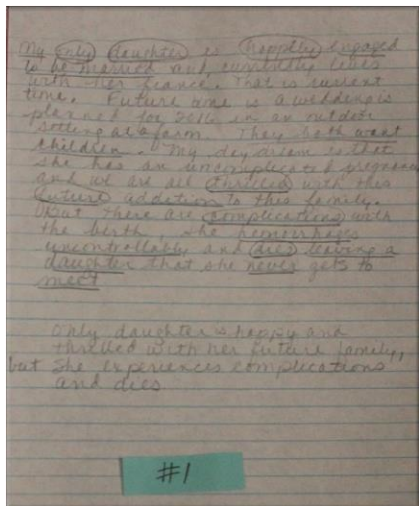 My only daughter is happily engaged
to be married and currently lives
with her fiance. That is current
time. Future one is a wedding is
planned for 2016 in an outdoor
setting at a farm. They both want
children. My day dream is that
she has an uncomplicated pregnancy
and we are all thrilled with this
future addition to this family.
But there are complications with
the birth, she hemorrhages
uncontrollably and dies leaving a
daughter that she never gets to
meet
Only daughter is happy and
thrilled with her future family,
but she experiences complications
and dies
#1